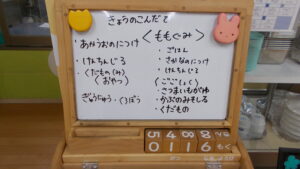 きょうのこんだて
・あかうおのにつけ
・けんちんじる
・くだもの(み)
(おやつ)
ぎゅうにゅう・くろぼう
<ももぐみ>
・ごはん
・さかなのにつけ
・けんちんじる
(ごごしょく)
・さつまいもがゆ
・かぶのみそしる
・くだもの
5488
0116もく